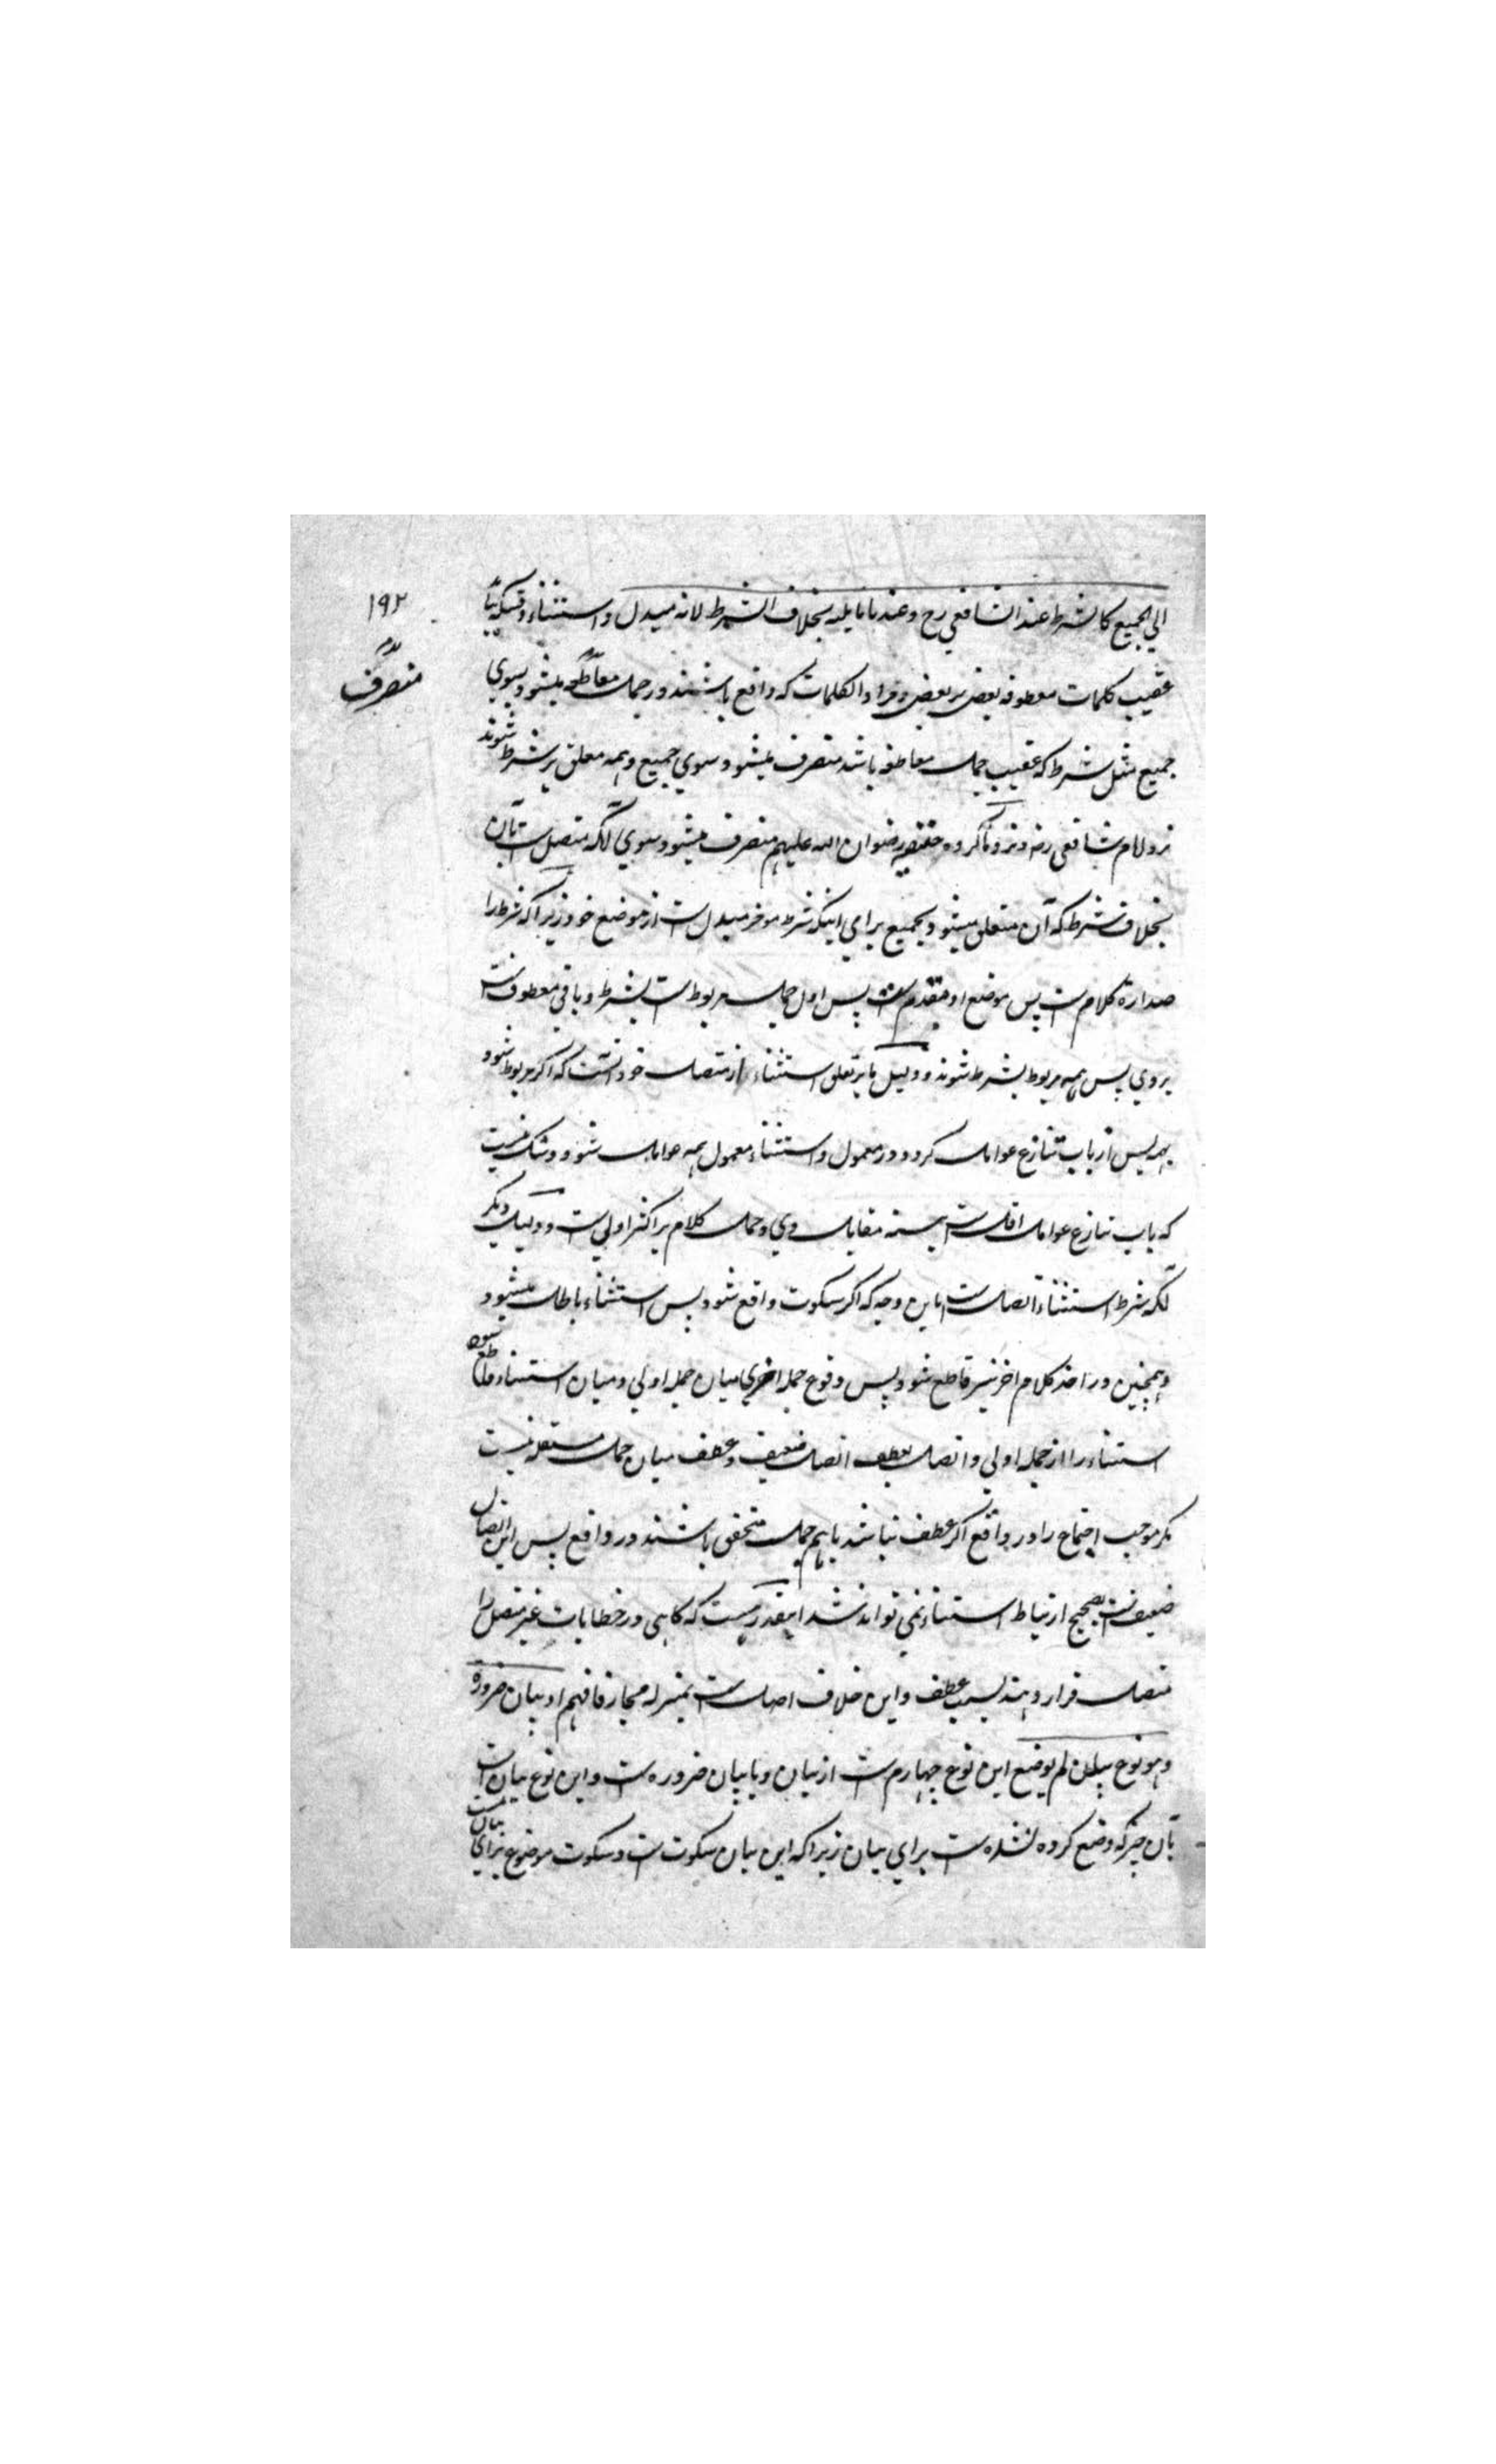 ۱۹۲
منصرف
الي الجميع كالشرط عند الشافعي رح وعندنا ما يليه بخلاف الشرط لانه مبدل و استثناء وقتيكه بيايد
عقيب كلمات معطوفه بعض بر بعض و مراد از كلمات كه واقع باشند در جمل معاطفه ميشود بسوي
جميع مثل شرط كه عقيب جمل معاطفه باشد منصرف ميشود سوي جميع و همه معلق بر شرط شوند
نزد امام شافعي رضه و نزد ما گروه حنفيه رضوان الله عليهم منصرف ميشود سوي آنكه متصل است بآن
بخلاف شرط كه آن متعلق ميشود بجميع براي اينكه شرط موخر مبدل است از موضع خود زيراكه شرط را
صدارة كلام است پس موضع او مقدم است پس اول جمل مربوط است بشرط و باقي معطوف است
بروي پس همه مربوط بشرط شوند و دليل ما بر تعلق استثناء از متصل خود آنست كه اگر مربوط شود
بهمه پس از باب تنازع عوامل گردد در معمول و استثناء معمول همه عوامل شود و شك نيست
كه باب تنازع عوامل اقل است به نسبة مقابل وي و حمل كلام بر اكثر اولي است و دليل ديگر
آنكه شرط استثناء اتصال است باين وجه كه اگر سكوت واقع شود پس استثناء باطل ميشود
و همچنين در اخذ كلام اخر نيز قاطع شود پس وقوع جمله اخري ميان جمله اولي و ميان استثناء قاطع شود
استثناء را از جمله اولي و اتصال بعطف اتصال ضعيف و عطف ميان جمل مستقله نيست
مگر موجب اجتماع را در واقع اگر عطف نباشد باهم جمل متحقق باشند در واقع پس اين اتصال
ضعيف است مصحح ارتباط استثناء نمي تواند شد اينقدر هست كه گاهي در خطابات غير متصل را
متصل قرار دهند بسبب عطف و اين خلاف اصل است بمنزله مجاز فافهم او بيان ضرورة
و هو نوع بيان لم يوضع اين نوع چهارم است از بيان و يا بيان ضروره است و اين نوع بيان است
بآن چيز كه وضع كرده نشده است براي بيان زيراكه اين بيان سكوت است و سكوت موضوع براي بيان نيست